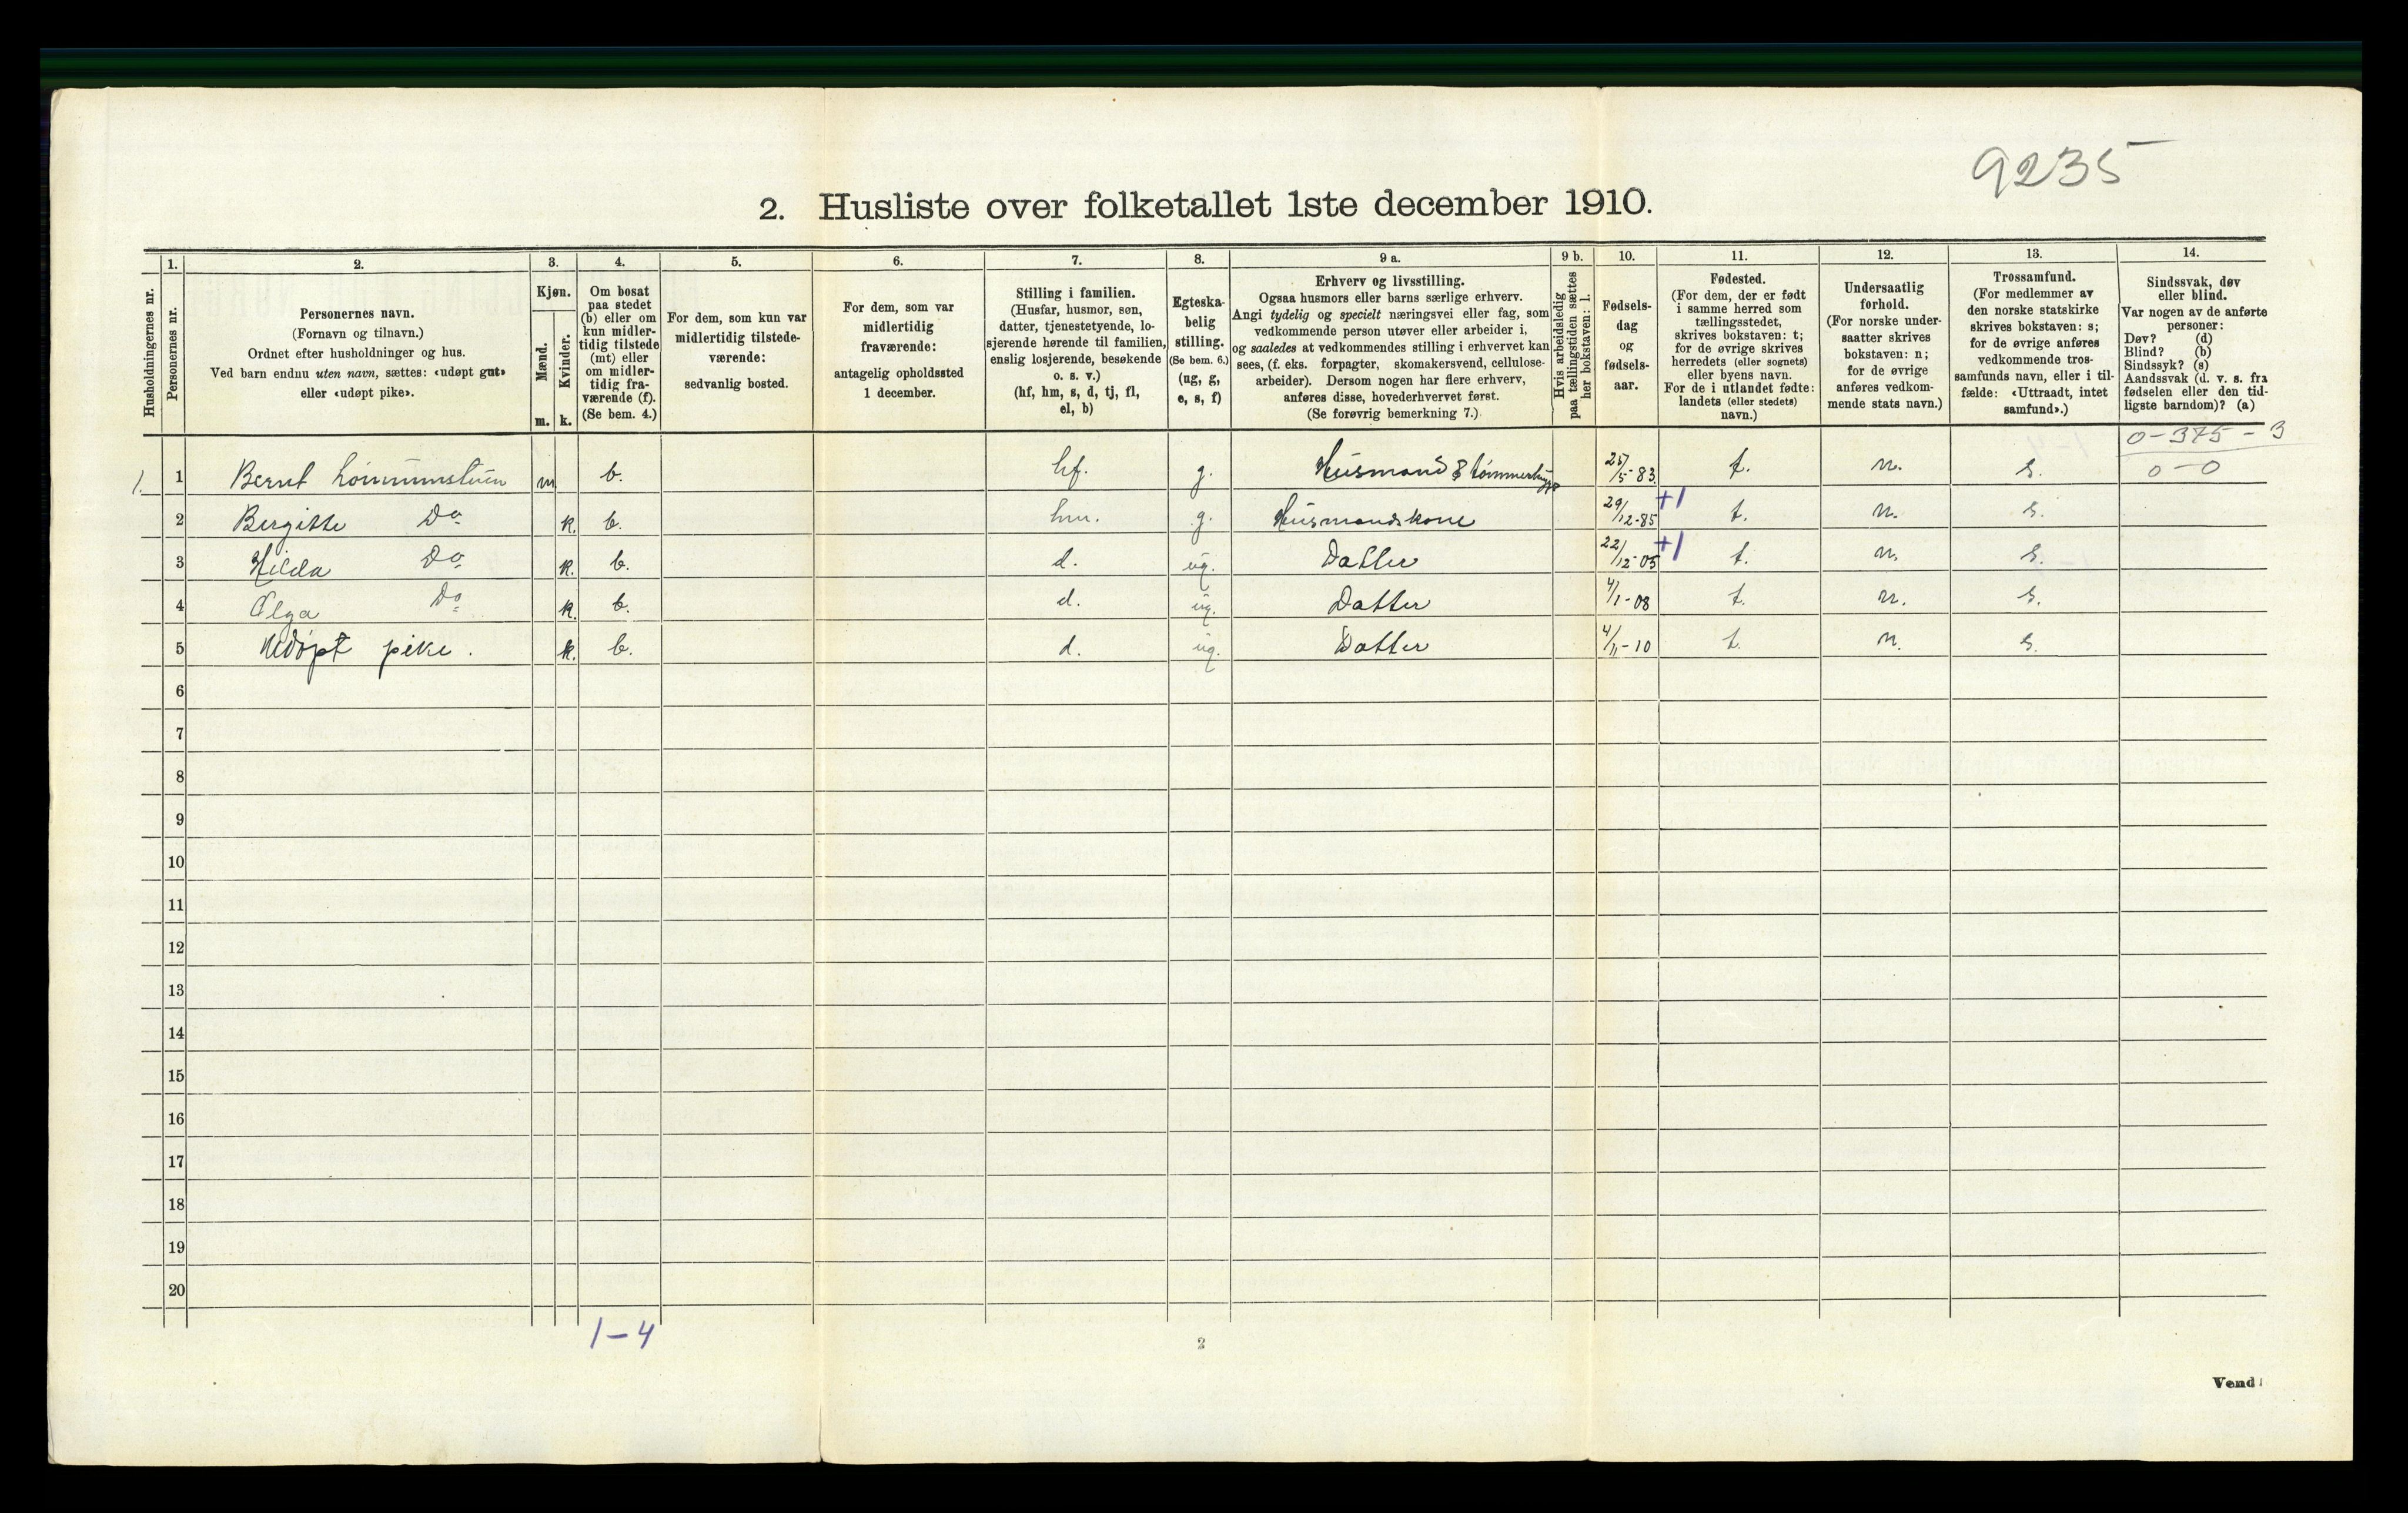 9235
2. Husliste over folketallet 1ste december 1910.
Husholdningernes nr.
1.
Personernes nr.
2.
Personernes navn.
(Fornavn og tilnavn.)
Ordnet efter husholdninger og hus.
Ved barn endnu uten navn, sættes: «udøpt gut»
eller «udøpt pike».
3.
Kjøn.
Mænd.
m.
Kvinder.
k.
4.
Om bosat
paa stedet
(b) eller om
kun midler-
tidig tilstede
(mt) eller
om midler-
tidig fra-
værende (f).
(Se bem. 4.)
5.
For dem, som kun var
midlertidig tilstede-
værende:
sedvanlig bosted.
6.
For dem, som var
midlertidig
fraværende:
antagelig opholdssted
1 december.
7.
Stilling i familien.
(Husfar, husmor, søn,
datter, tjenestetyende, lo-
sjerende hørende til familien,
enslig losjerende, besøkende
o. s. v.)
(hf, hm, s, d, tj, fl,
el, b)
8.
Egteska-
belig
stilling.
(Se bem. 6.)
(ug, g,
e, s, f)
9 a.
Erhverv og livsstilling.
Ogsaa husmors eller barns særlige erhverv.
Angi tydelig og specielt næringsvei eller fag, som
vedkommende person utøver eller arbeider i,
og saaledes at vedkommendes stilling i erhvervet kan
sees, (f. eks. forpagter, skomakersvend, cellulose-
arbeider). Dersom nogen har flere erhverv,
anføres disse, hovederhvervet først.
(Se forøvrig bemerkning 7.)
9 b.
Hvis arbeidsledig
paa tællingstiden sættes
her bokstaven: l.
10.
Fødsels-
dag
og
fødsels-
aar.
11.
Fødested.
(For dem, der er født
i samme herred som
tællingsstedet,
skrives bokstaven: t;
for de øvrige skrives
herredets (eller sognets)
eller byens navn.
For de i utlandet fødte:
landets (eller stedets)
navn.)
12.
Undersaatlig
forhold.
(For norske under-
saatter skrives
bokstaven: n;
for de øvrige
anføres vedkom-
mende stats navn.)
13.
Trossamfund.
(For medlemmer av
den norske statskirke
skrives bokstaven: s;
for de øvrige anføres
vedkommende tros-
samfunds navn, eller i til-
fælde: «Uttraadt, intet
samfund».)
14.
Sindssvak, døv
eller blind.
Var nogen av de anførte
personer:
Døv? (d)
Blind? (b)
Sindssyk? (s)
Aandssvak (d. v. s. fra
fødselen eller den tid-
ligste barndom)? (a)
0-375-3
1. 1 Bernt m b. hf. g. Husmand & tømmerhugger 25/5-83 t. n. s. 0-0
2 Bergitte Do k. b. hm. g. Husmandskone 29/12-85 +1 t. n. s.
3 Hilda Do k. b. d. ug. Datter 22/12-05 +1 t. n. s.
4 Olga Do k. b. d. ug. Datter 4/1-08 t. n. s.
5 Udøpt pike. k. b. d. ug. Datter 4/11-10 t. n. s.
6
7
8
9
10
11
12
13
14
15
16
17
18
19
20
1-4
2
Vend!